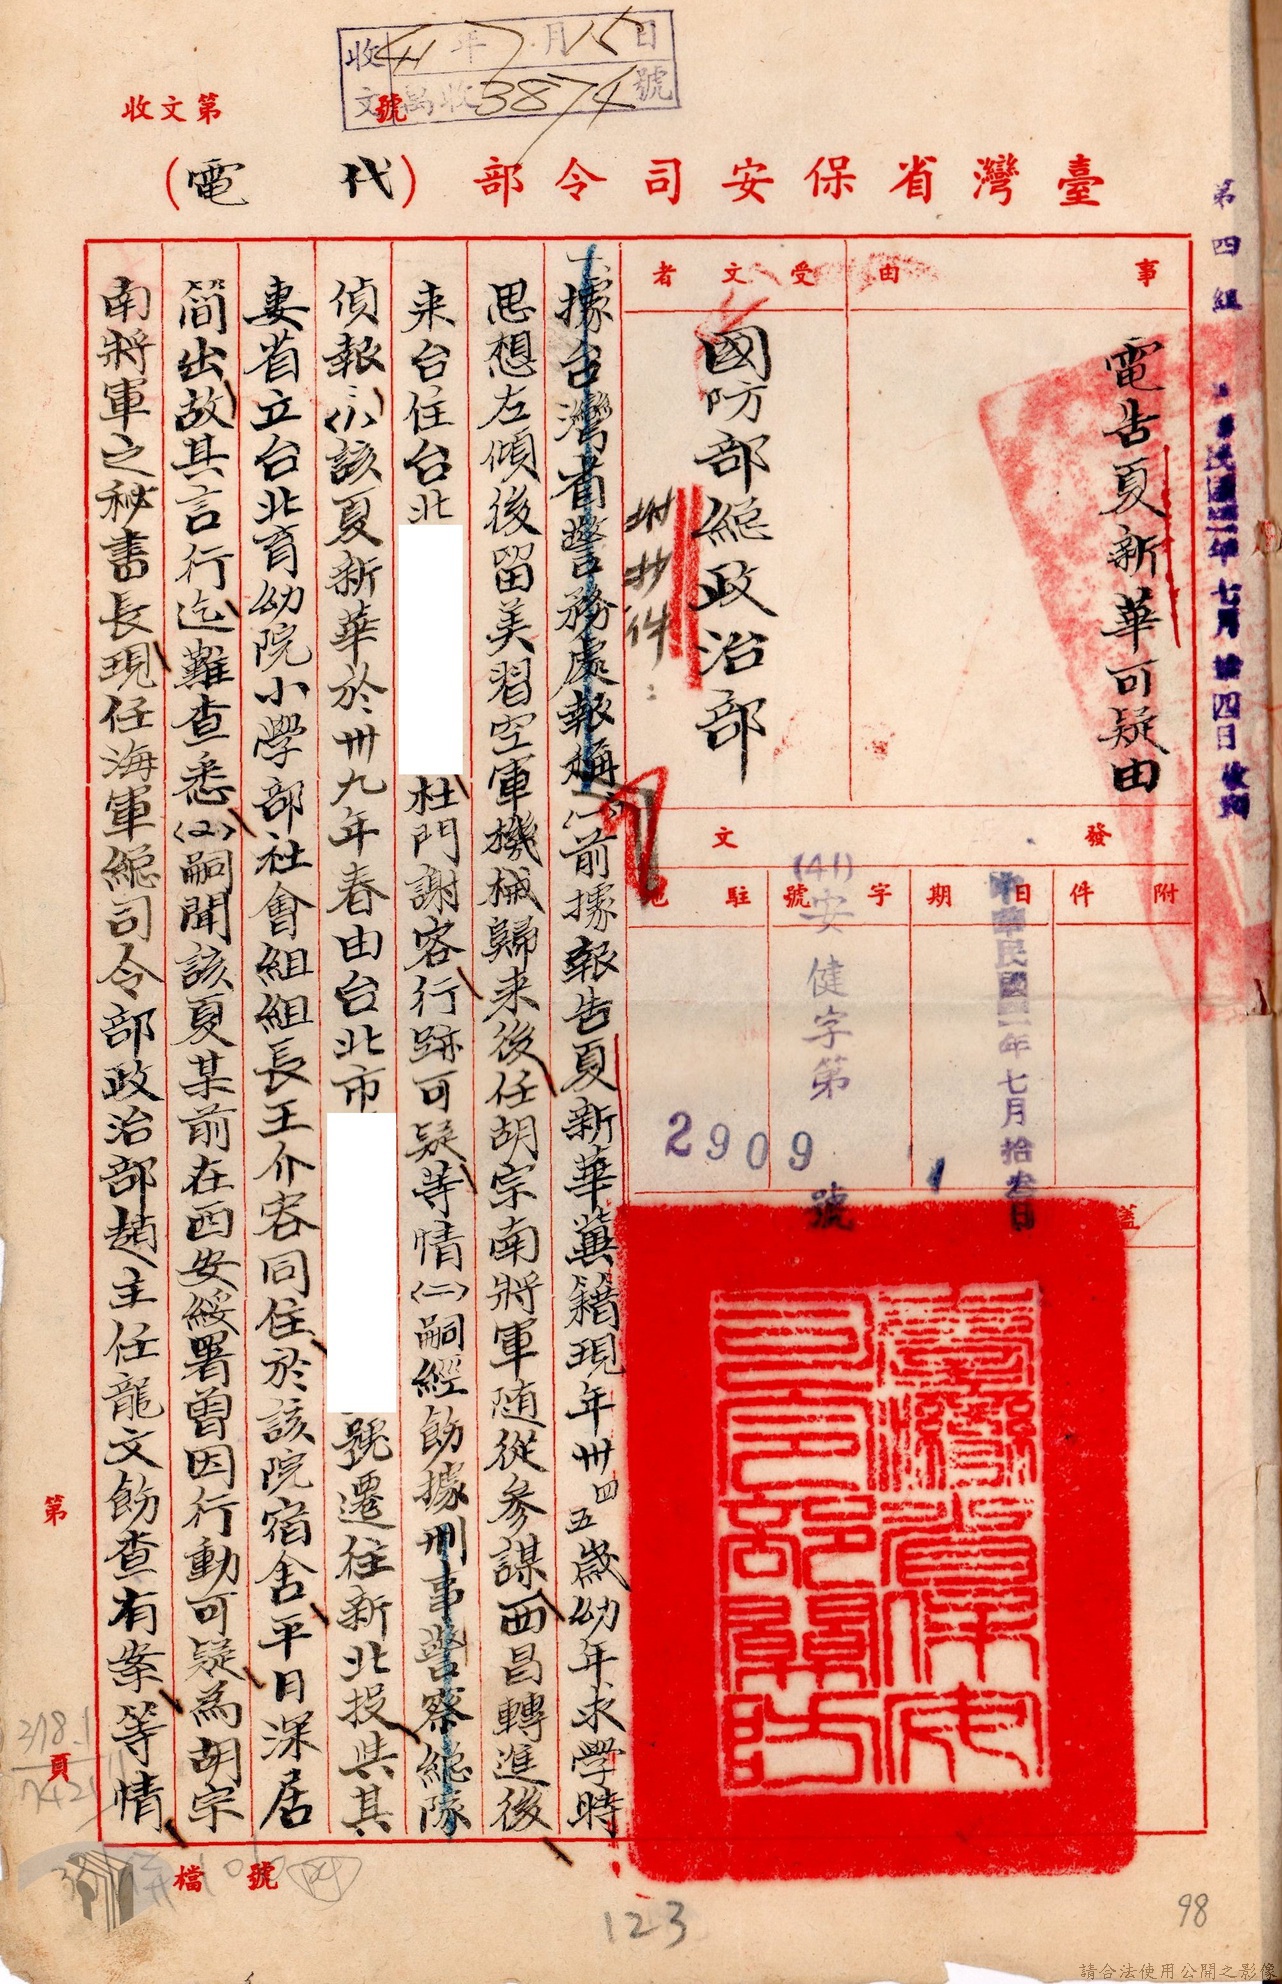 收文 41年7月15日
萬收3874號
收文第 號
臺灣省保安司令部（代電）
第四組
民國四十一年七月拾四日收到
事由
電告夏新華可疑由
受文者
國防部總政治部
附抄件
發文
附件
日期
中華民國四十一年七月拾叁日
字號
(41)安健字第2909號
駐地
蓋
臺灣省保安司令部關防
一、據台灣省警務處報稱㈠前據報告夏新華冀籍現年卅四五歲幼年求學時
思想左傾後留美習空軍機械歸來後任胡宗南將軍随從參謀西昌轉進後
来台住台北 杜門謝客行跡可疑等情㈡嗣經飭據刑事警察總隊
偵報⑴該夏新華於卅九年春由台北市 號遷住新北投與其
妻省立台北育幼院小學部社會組組長王介客同住於該院宿舍平日深居
簡出故其言行迄難查悉⑵嗣聞該夏某前在西安綏署曾因行動可疑為胡宗
南將軍之秘書長現任海軍總司令部政治部趙主任龍文飭查有案等情
第 頁
檔號
123
98
請合法使用公開之影像